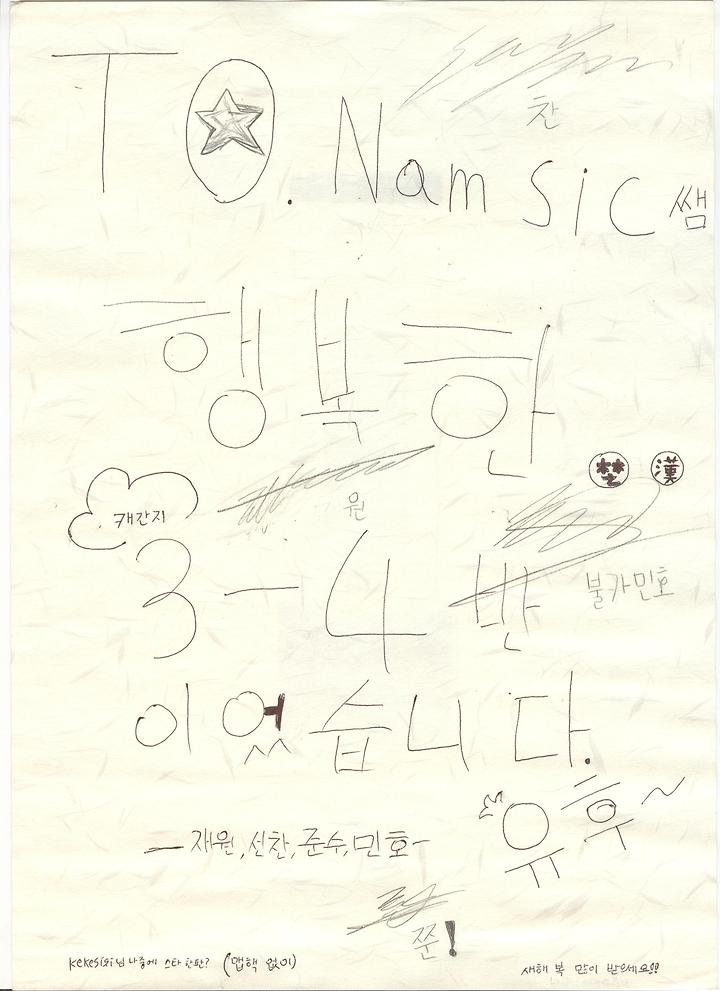 찬
TO. Nam Sic 쌤
행복한
漢
캐간지
원
3-4반
불카민호
이었습니다.
유후~
- 재원, 선찬, 준수, 민호 -
쭌!
kekesisi님 나중에 스타 한판? (맵핵 없이)
새해 복 많이 받으세요!!